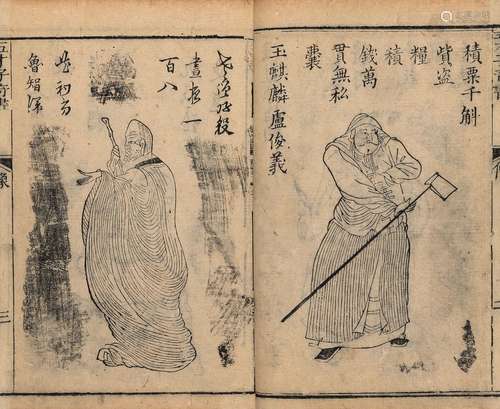 積粟千斛
貲盜
糧
積
錢萬
貫無私
囊
玉麒麟盧俊義
老僧好殺
晝夜一
百八
花和尚
魯智深
五才子奇書
像
三